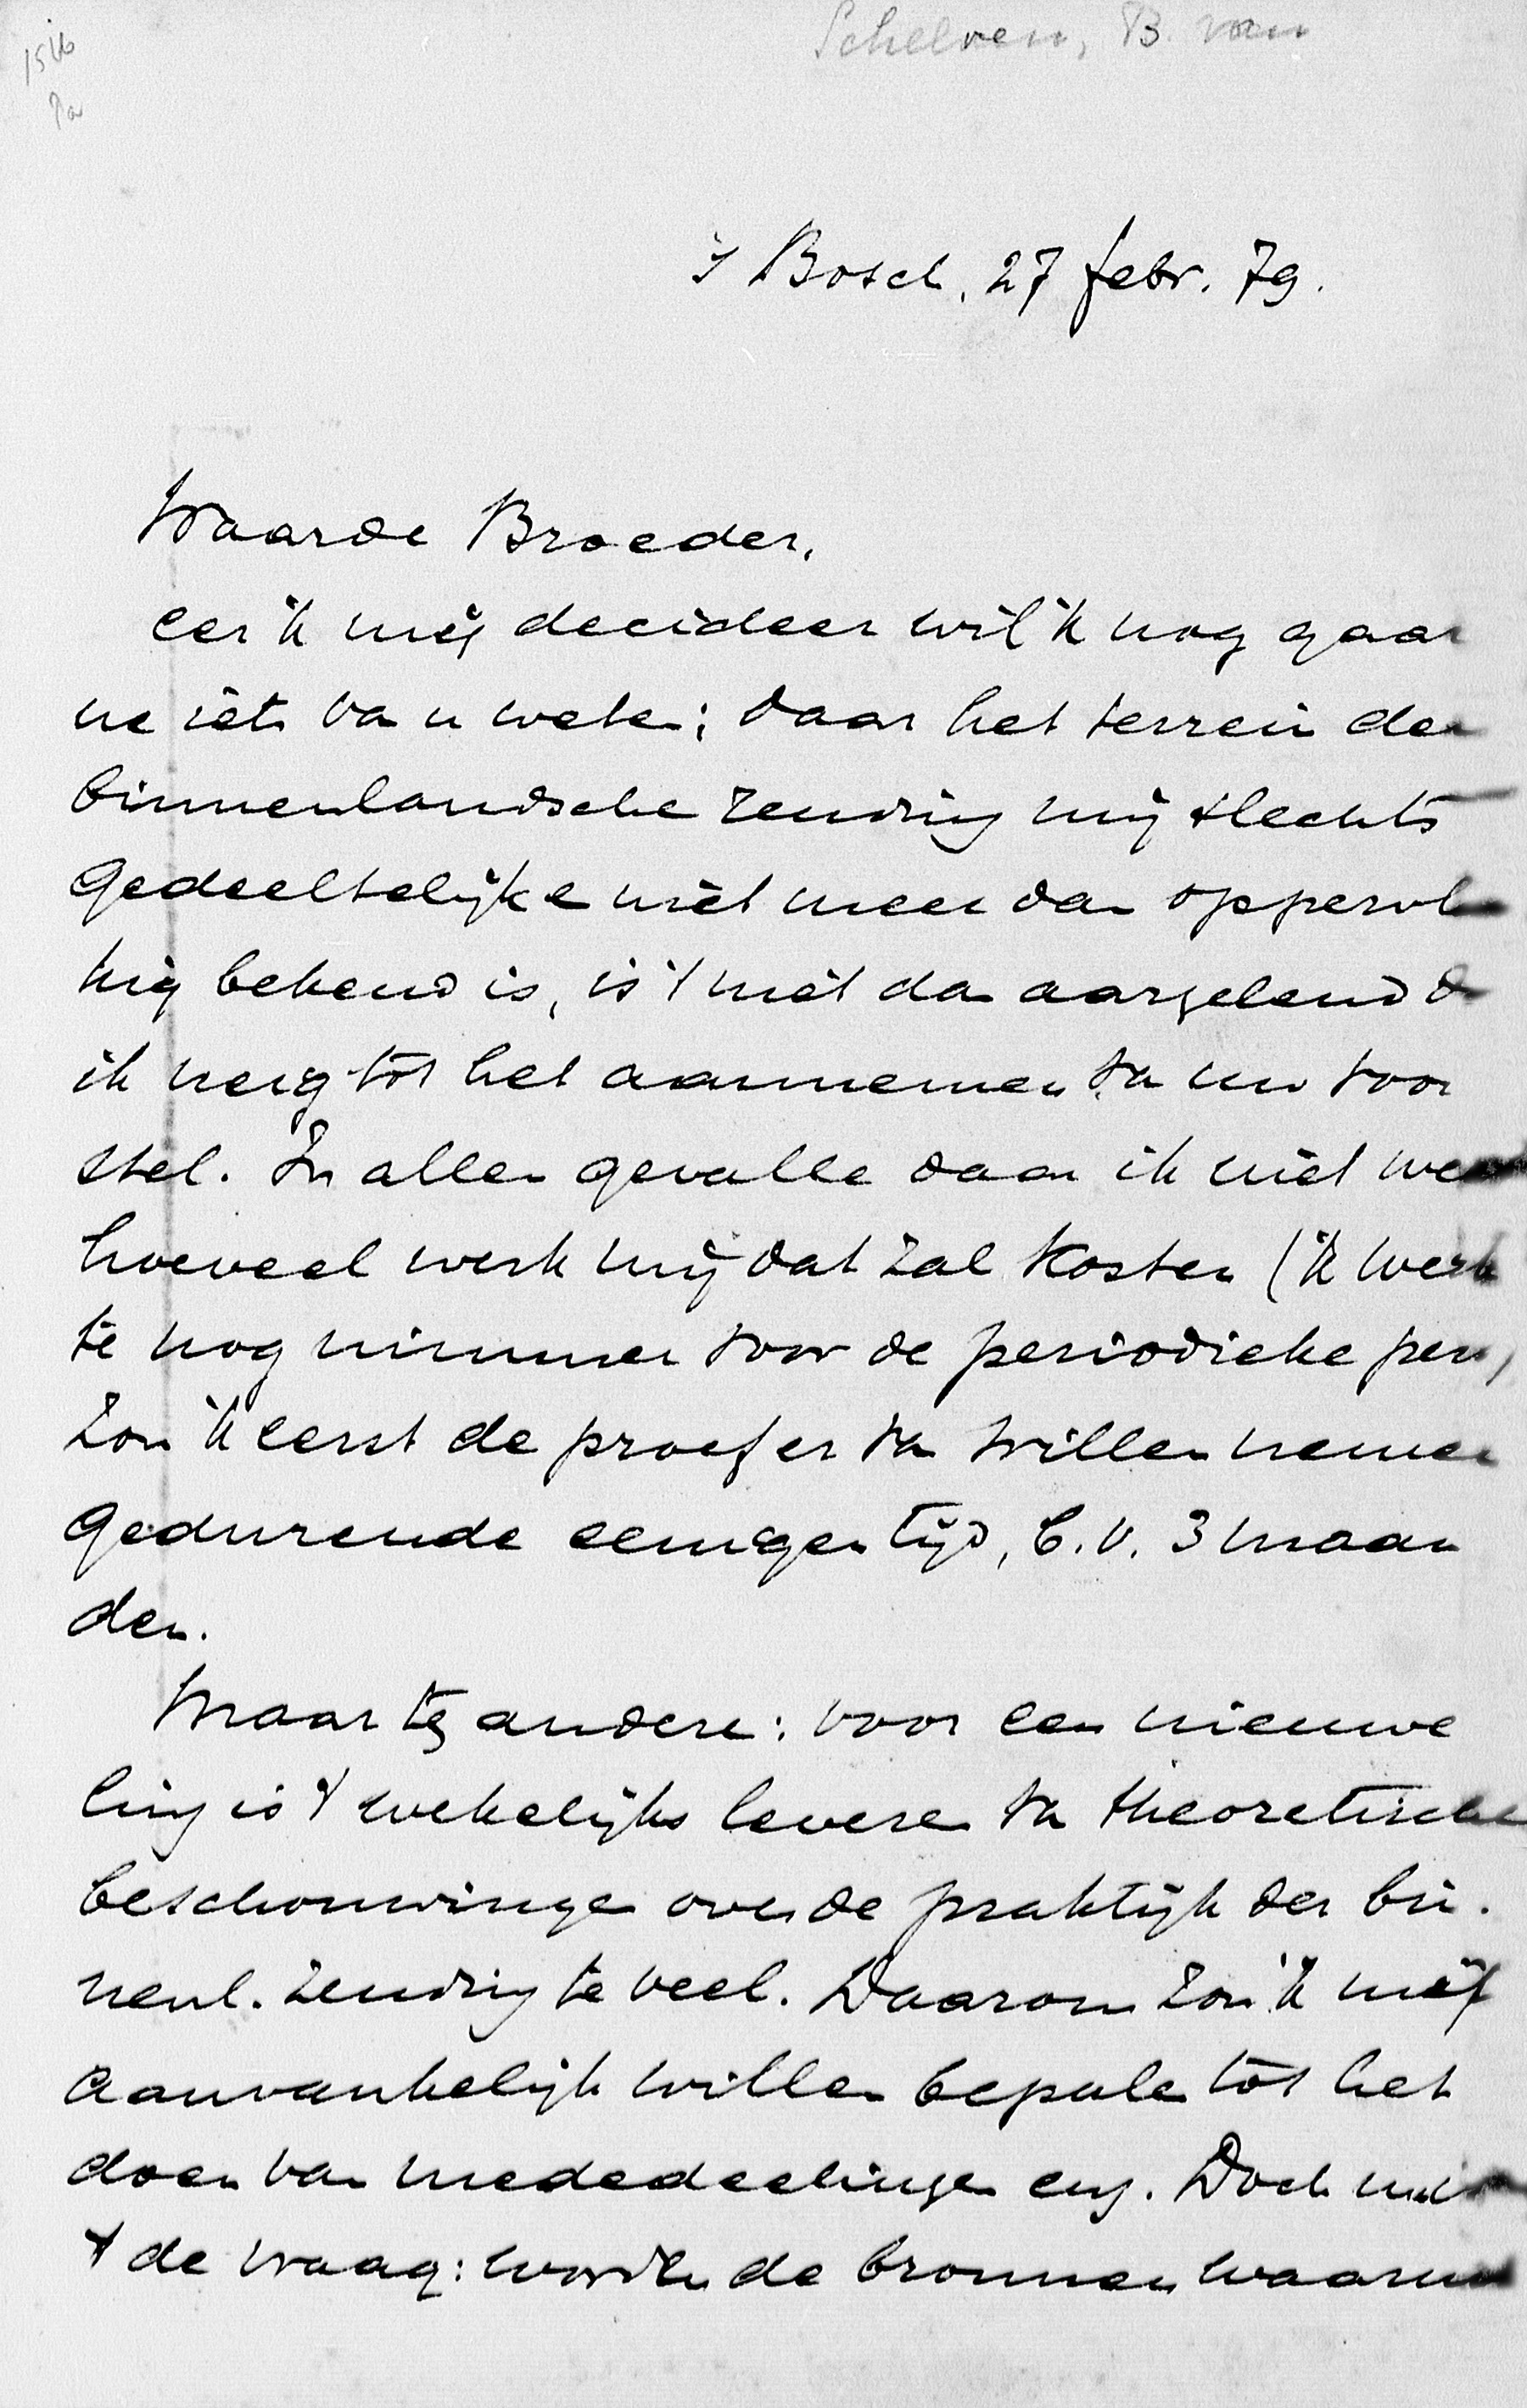 Schelven, B. van
's Bosch, 27 febr. 79.
Waarde Broeder,
eer ik mij decideer wil ik nog gaar
ne iets van u weten; daar het terrein der
binnenlandsche zending mij slechts
gedeeltelijk & niet meer dan oppervl
kig bekend is, is 't niet dan aarzelend d
ik neig tot het aannemen van uw voor
stel. In allen gevalle daar ik niet weet
hoeveel werk mij dat zal kosten (ik werk
te nog nimmer voor de periodieke pers)
zou ik eerst de proef er van willen nemen
gedurende eenigen tijd, b.v. 3 maan
den.
Maar ten andere: voor een nieuwe
ling is 't wekelijks leveren van theoretische
beschouwingen over de praktijk der bin.
nenl. zending te veel. Daarom zou ik mij
aanvankelijk willen bepalen tot het
doen van mededeelingen enz. Doch nu is
't de vraag: worden de bronnen waaruit